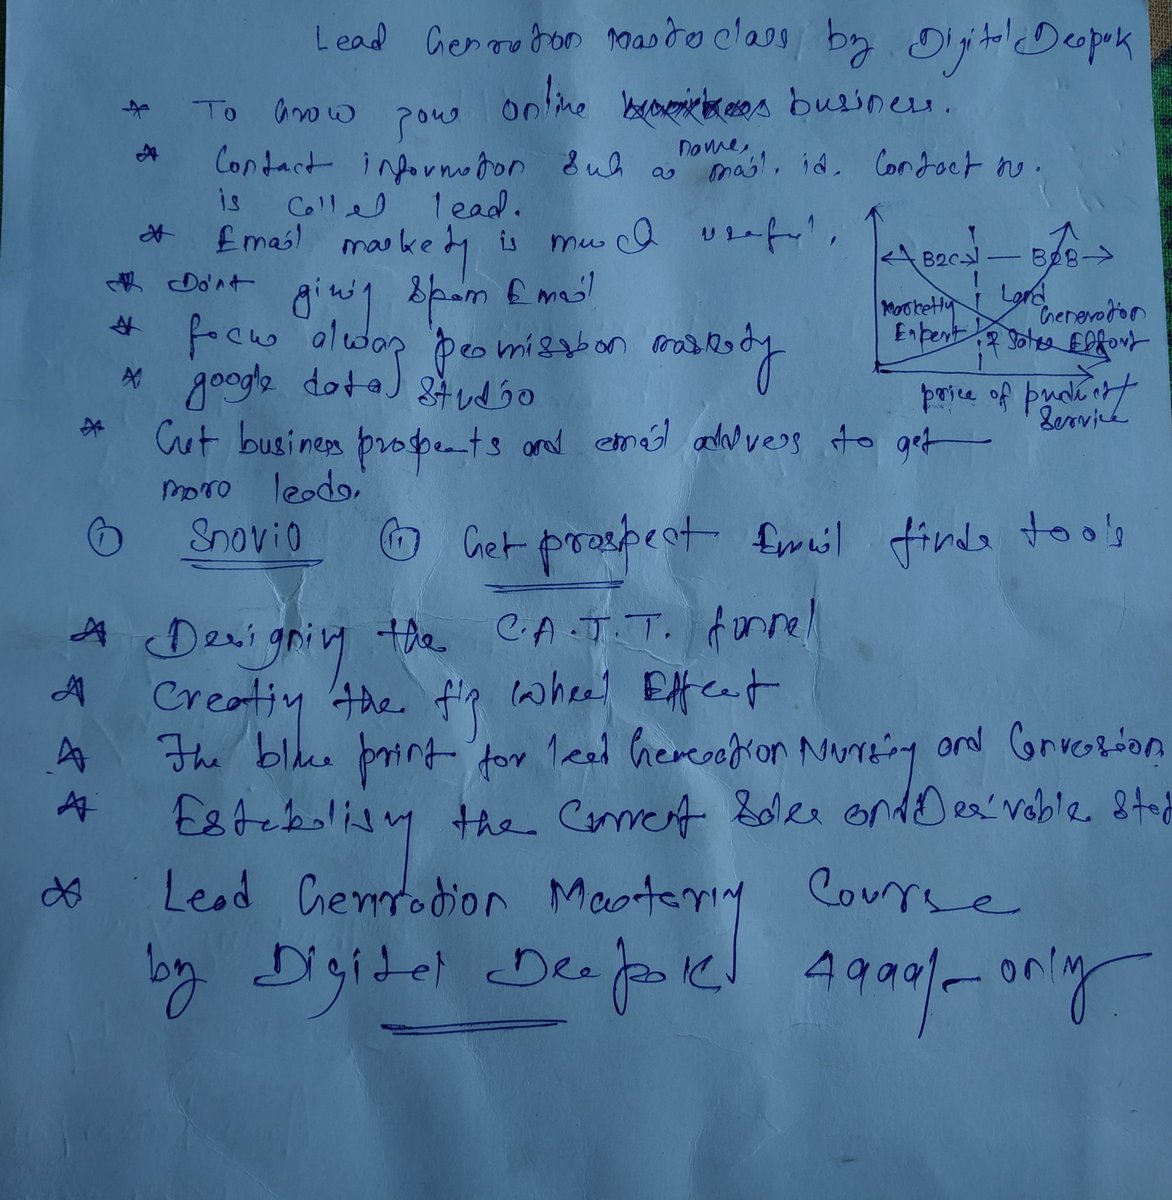 Lead Genration Masterclass by Digital Deepak
* To Grow your online business.
* Contact information Such as name, mail. id. Contact no.
is called lead.
* Email marketing is much useful.
* Don't giving Spam Email
* focus always permission marketing
* google data Studio
* Get business prospects and email address to get
more leads.
① Snovio ② Get prospect Email finds tools
* Designing the C.A.T.T. funnel
* Creating the fly wheel Effect
* The blue print for lead Generation Nursing and Conversion
* Establising the Current Sales and Desirable
* Lead Genration Mastery Course
by Digital Deepak 4999/- only
B2C B2B
Marketing Lead Generation
Expert & Sales Effort
price of product
Service